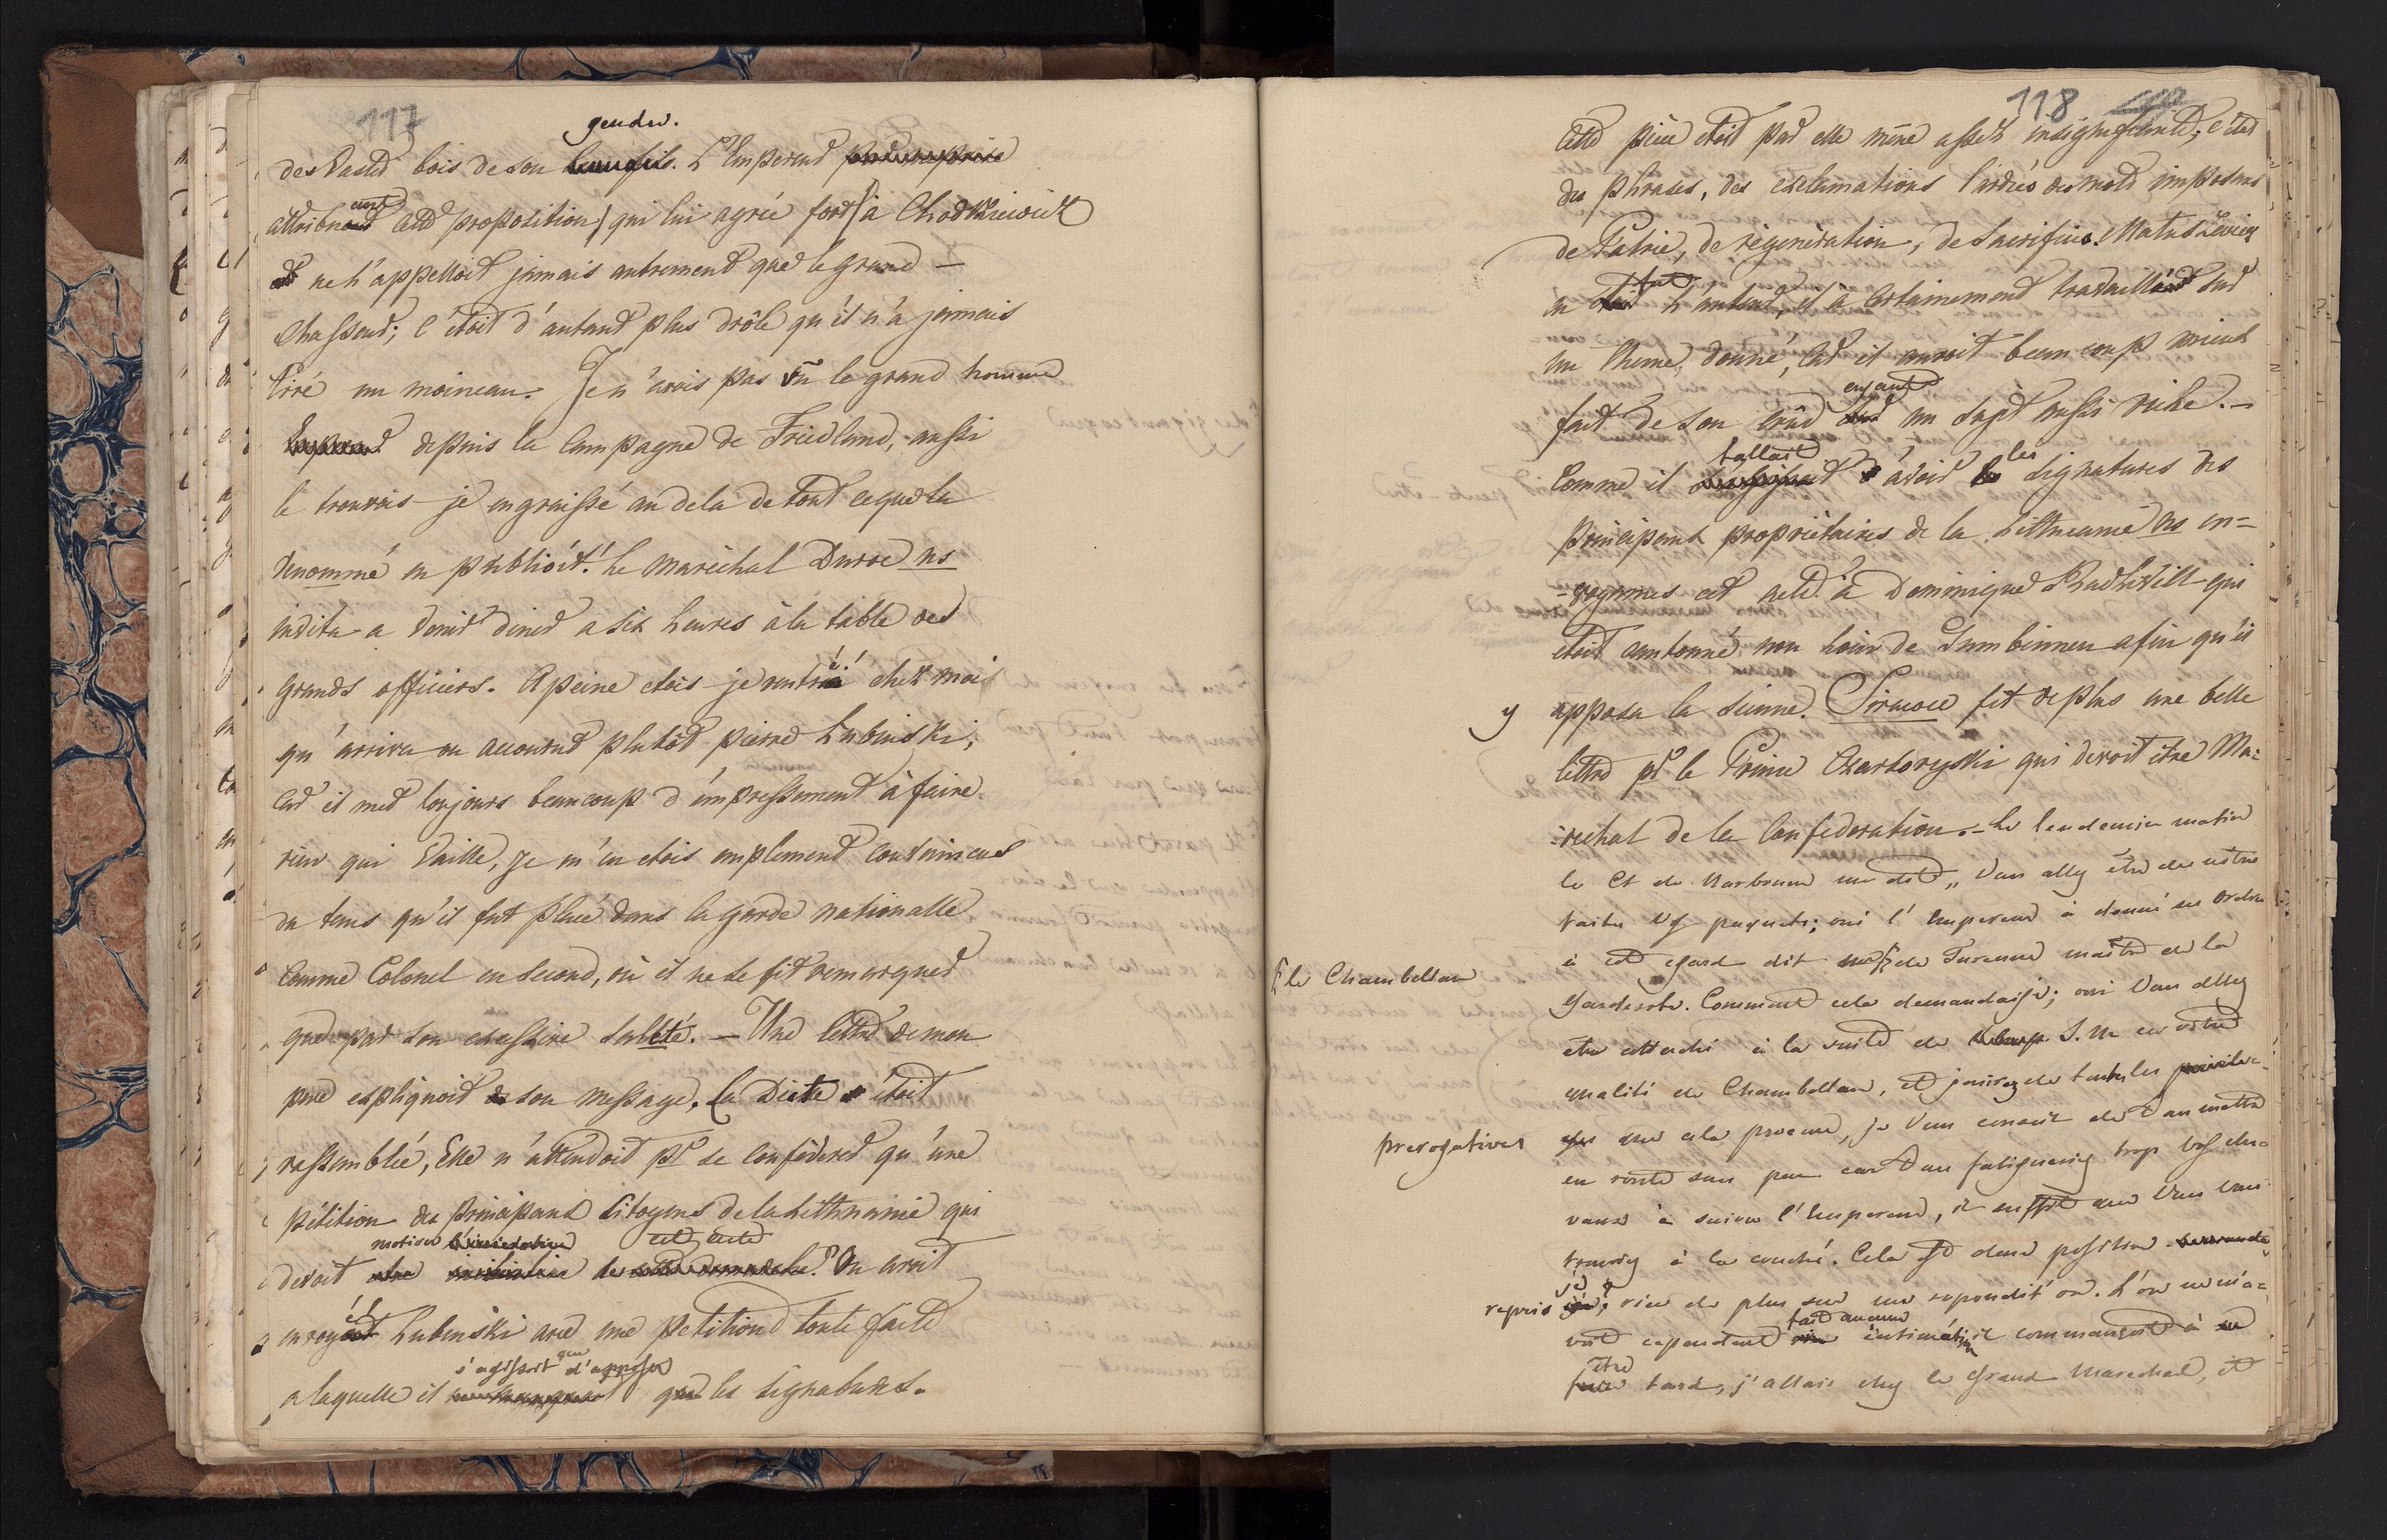 117
gendre.
des vastes bois de son beaufils. L'Empereur
attribuant cette proposition (qui lui agrée fort) à Chodkiewicz
et ne l'appelloit jamais autrement que le grand –
Chasseur; c'étoit d'autant plus drôle qu'il n'a jamais
tiré un moineau. Je n'avois pas vu le grand homme
depuis la Campagne de Friedland, aussi
le trouvais-je engraissé au dela de tout ce que la
renommé en publioit! le Maréchal Duroc ns
invita a venir diner a six heures à la table des
grands officiers. Apeine etois-je rentré chez moi
qu'arriva ou accourut plutôt pierre Lubinski;
car il met toujours beaucoup d'empressement à faire
rien qui vaille, je m'en etois amplement convaincus
du tems qu'il fut placé dans la garde nationalle
comme Colonel en second, où il ne se fit remarquer
que par son excessive saleté. – Une lettre de mon
pere expliquoit son message. La Diete étoit
rassemblée, Elle n'attendoit pr se confédérer qu'une
pétition des principaux Citoyens de la Lithuanie qui
motiver cet acte
devoit On avoit
envoyé Lubinski avec une petition toute faite
s'agissoit que d'apposer
a laquelle il les signatures.
118
Cette pièce etoit par elle même assez insignifiante; c'étoit
des phrases, des exclamations lardées de mots imposans
de Patrie, de régénération, de sacrifices. Matuszewicz
fut
en l'auteur, et à certainement travaillé sur
un theme donné, car il auroit beaucoup mieux
ayant
fait de son crû un sujet aussi riche. –
falloit les
Comme il avoir signatures des
principaux propriétaires de la Lithuanie ns en=
=voyames cet acte à Dominique Radzivill qui
etoit cantonné non loin de Gumbinnen afin qu'il
y apposa la sienne. fit de plus une belle
lettre pr le Prince Czartoryski qui devoit être Ma=
=rechal de la Confederation. – Le lendemain matin
le Ct de Narbonne me dit „ Vous allez être des nôtres
faites vos paquets; oui l'Empereur à donné ses ordres
à cet egard dit de Turenne maitre de la
le Chambellan
garderobe. Comment cela demandaisje; oui Vous allez
etre attaché à la suite de S. M en votre
qualité de Chambellan, et jouirez de toutes les
prerogatives
que cela procure, je vous conseil de vous mettre
en route sans peur car Vous fatigueriez trop vos che=
vaux à suivre l'Empereur, il suffit que Vous vous
trouviez à la couché. Cela est dans position
je
repris rien de plus sur me repondit on. L'on ne m'a=
fait aucune
voit cependant intimation il commençoit à se
être
faire tard, j'allais chez le Grand Marechal, et